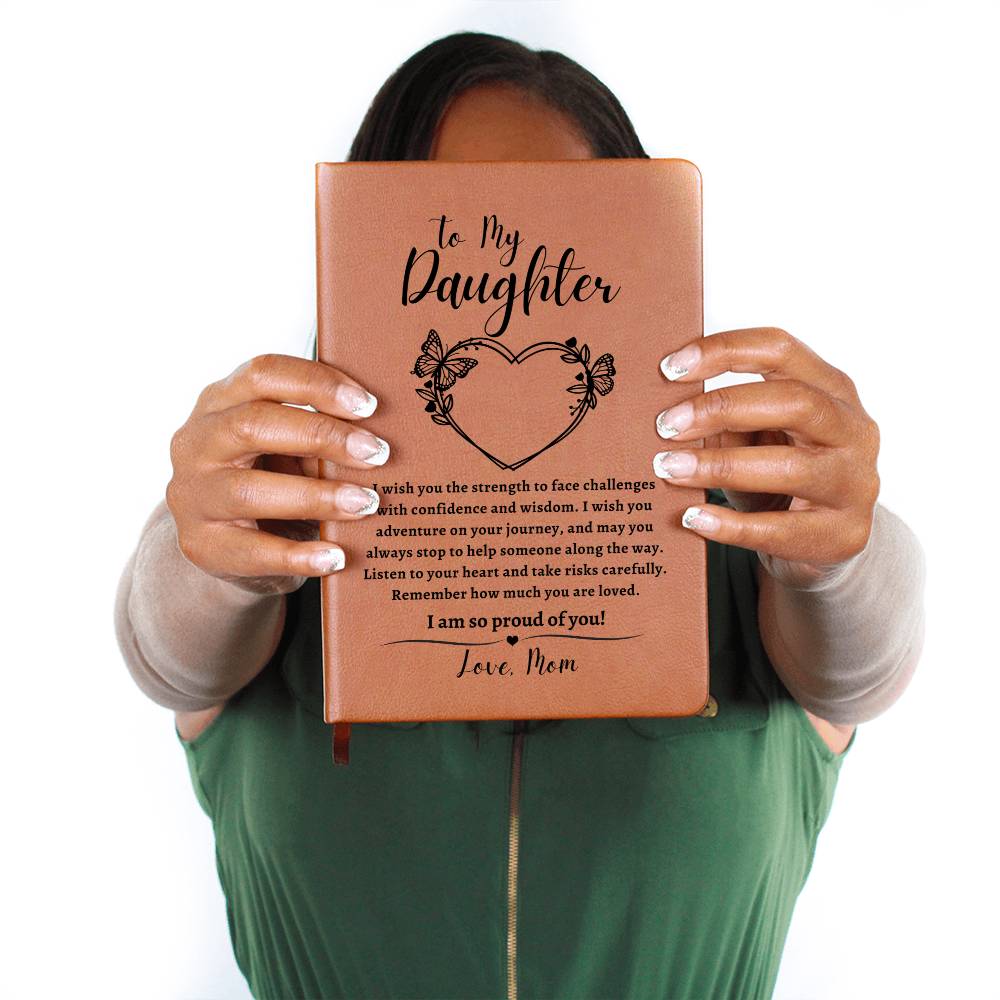 To My
Daughter
I wish you the strength to face challenges
with confidence and wisdom. I wish you
adventure on your journey, and may you
always stop to help someone along the way.
Listen to your heart and take risks carefully.
Remember how much you are loved.
I am so proud of you!
Love, Mom